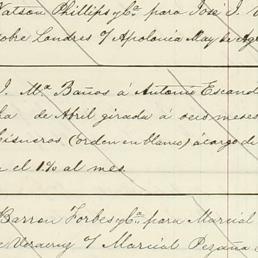 Watson Phillips y Cª para José J.
sobre Londres o/ Apolonia May de Ag
J. Mª Baños á Antonio Escand
ha de Abril girada á seis meses
Cisneros (orden en blanco) á cargo de
n el 1% al mes
Barron Forbes y Cª para Marcial
e Veracruz o/ Marcial Pezaña